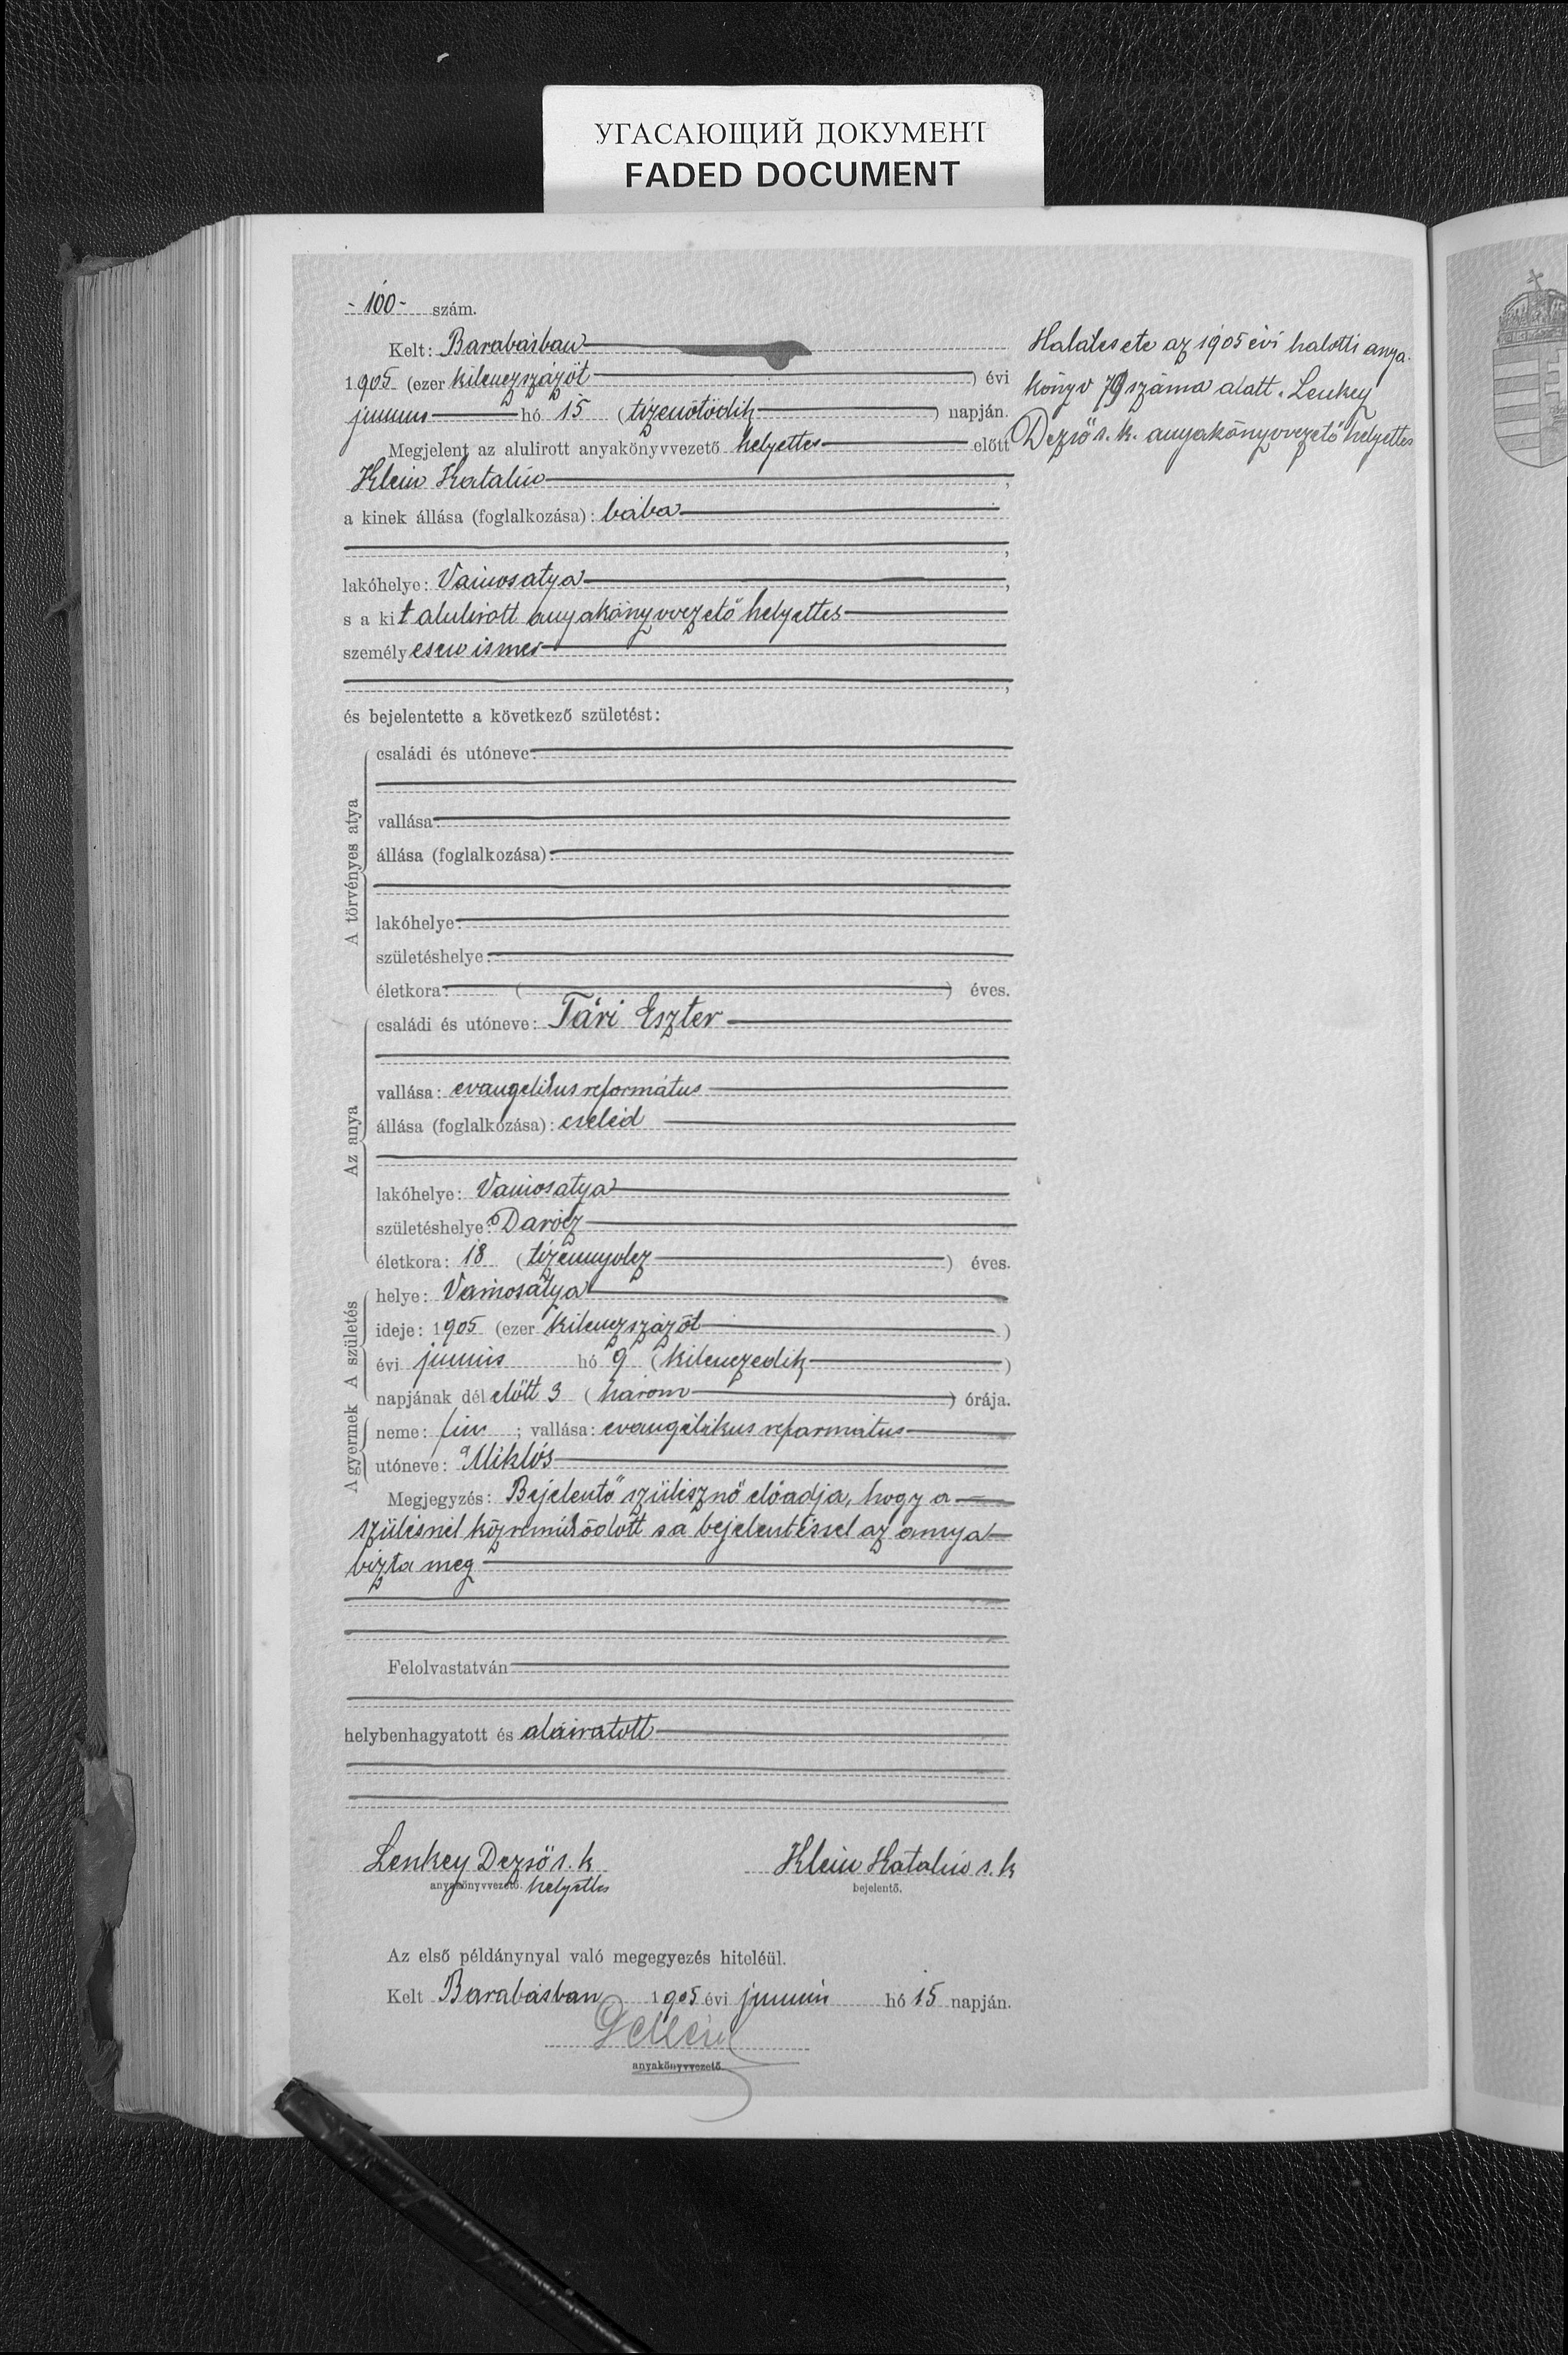 УГАСАЮЩИЙ ДОКУМЕНТ
FADED DOCUMENT
- 100 - szám.
Kelt: Barabásban
1905 (ezer kilenczszázöt) évi
junius hó 15 (tizenötödik) napján.
Megjelent az alulirott anyakönyvvezető helyettes előtt
Klein Katalin,
a kinek állása (foglalkozása): bába
,
lakóhelye: Vámosatya,
s a kit alulirott anyakönyvvezető helyettes
személyesen ismer
,
és bejelentette a következő születést:
A törvényes atya
családi és utóneve:
vallása:
állása (foglalkozása):
lakóhelye:
születéshelye:
életkora: ( ) éves.
Az anya
családi és utóneve: Tári Eszter
vallása: evangelikus református
állása (foglalkozása): cseléd
lakóhelye: Vámosatya
születéshelye: Darócz
életkora: 18 (tizennyolcz) éves.
A születés
helye: Vámosatya
ideje: 1905 (ezer kilenczszázöt)
évi junius hó 9 (kilenczedik)
napjának dél előtt 3 (három) órája.
A gyermek
neme: fiu; vallása: evangélikus református
utóneve: Miklós
Megjegyzés: Bejelentő szülésznő előadja, hogy a
szülésnél közreműködött s a bejelentéssel az annya
bizta meg
Felolvastatván
helybenhagyatott és aláiratott
Lenkey Dezső s. k. Klein Katalin s. k
anyakönyvvezető. helyettes bejelentő.
Az első példánynyal való megegyezés hiteléül.
Kelt Barabásban 1905 évi junius hó 15 napján.
anyakönyvvezető
Halálesete az 1905 évi halotti anya-
könyv 79 száma alatt. Lenkey
Dezső s. k. anyakönyvvezető helyettes